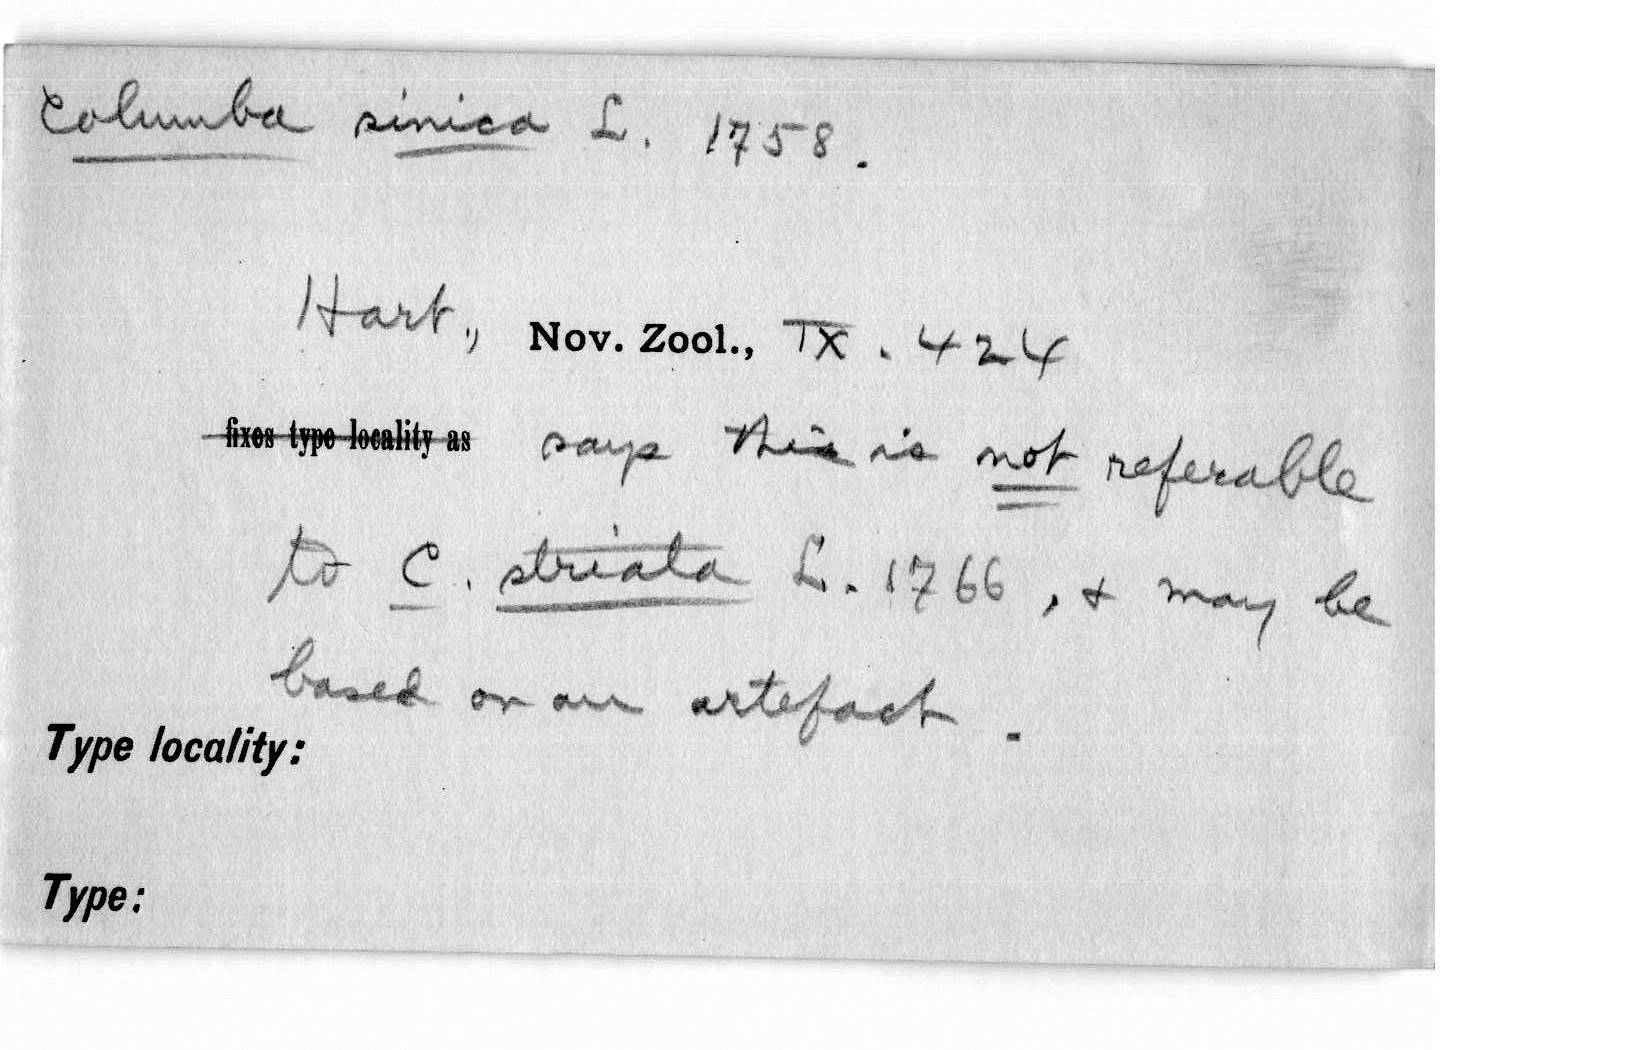 Columba sinica L. 1758.
Hart., Nov. Zool., IX. 424
fixes type locality as says this is not referable
to C. striata L. 1766, & may be
based on an artefact.
Type locality:
Type: